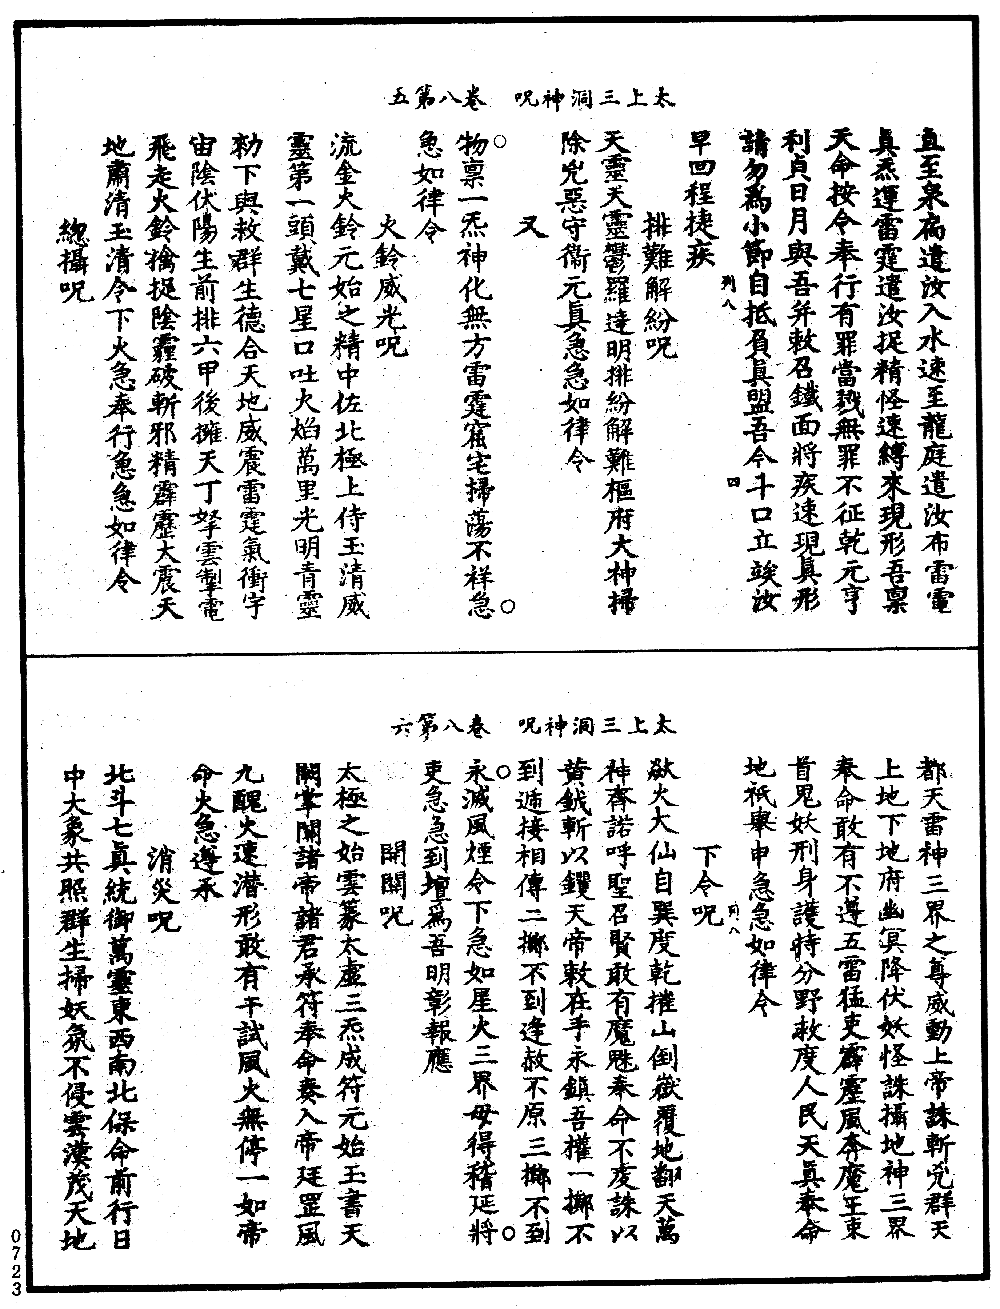 太上三洞神呪　卷八第五
直至泉扃遣汝入水速至龍庭遣汝布雷電
眞炁運雷霆遣汝捉精怪速縛來現形吾禀
天命按令奉行有罪當戮無罪不征乾元亨
利貞日月與吾并敕召鐵面將疾速現眞形
請勿爲小節自抵負眞盟吾今斗口立竢汝
列八
四
早回程捷疾
排難解紛呪
天靈天靈鬱羅達明排紛解難樞府大神掃
除兇惡守衞元眞急急如律令
又
物禀一炁神化無方雷霆窟宅掃蕩不祥急
急如律令
火鈴威光呪
流金火鈴元始之精中佐北極上侍玉清威
靈第一頭戴七星口吐火焰萬里光明青靈
勑下與救群生德合天地威震雷霆氣衝宇
宙陰伏陽生前排六甲後擁天丁拏雲掣電
飛走火鈴擒捉陰霾破斬邪精霹靂大震天
地肅清玉清令下火急奉行急急如律令
總攝呪
太上三洞神呪　卷八第六
都天雷神三界之尊威動上帝誅斬兇群天
上地下地府幽冥降伏妖怪誅攝地神三界
奉命敢有不遵五雷猛吏霹靂風奔魔王束
首鬼妖刑身護持分野救度人民天眞奉命
地祇舉申急急如律令
列八
下令呪
歘火大仙自巽度乾摧山倒嶽覆地翻天萬
神齊諾呼聖召賢敢有魔魅奉命不虔誅以
黄鉞斬以钁天帝敕在手永鎮吾權一擲不
到遞接相傳二擲不到逢赦不原三擲不到
永滅風煙令下急如星火三界毋得稽延將
吏急急到壇爲吾明彰報應
開關呪
太極之始雲篆太虛三炁成符元始玉書天
關掌闢諸帝諸君承符奉命奏入帝廷罡風
九醜火速潛形敢有干試風火無停一如帝
命火急遵承
消災呪
北斗七眞統御萬靈東西南北保命前行日
中大象共照群生掃妖氛不侵雲漢茂天地
0723